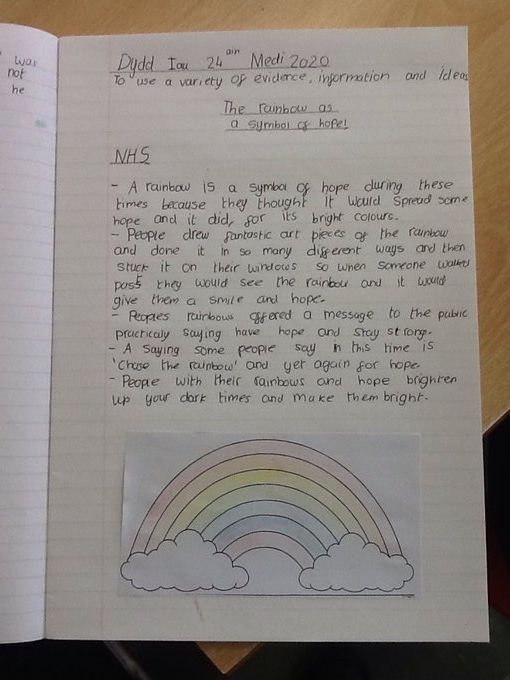 was
not
he
Dydd Iau 24ain Medi 2020
To use a variety of evidence, information and ideas
The rainbow as
a symbol of hope!
NHS
- A rainbow is a symbol of hope during these
times because they thought it would spread some
hope and it did, for its bright colours.
- People drew fantastic art pieces of the rainbow
and done it in so many different ways and then
stuck it on their windows so when someone walked
pass they would see the rainbow and it would
give them a smile and hope.
- Peoples rainbows offered a message to the public
practicaly saying have hope and stay strong.
- A saying some people say in this time is
'Chase the rainbow' and yet again for hope.
- People with their rainbows and hope brighten
up your dark times and make them bright.